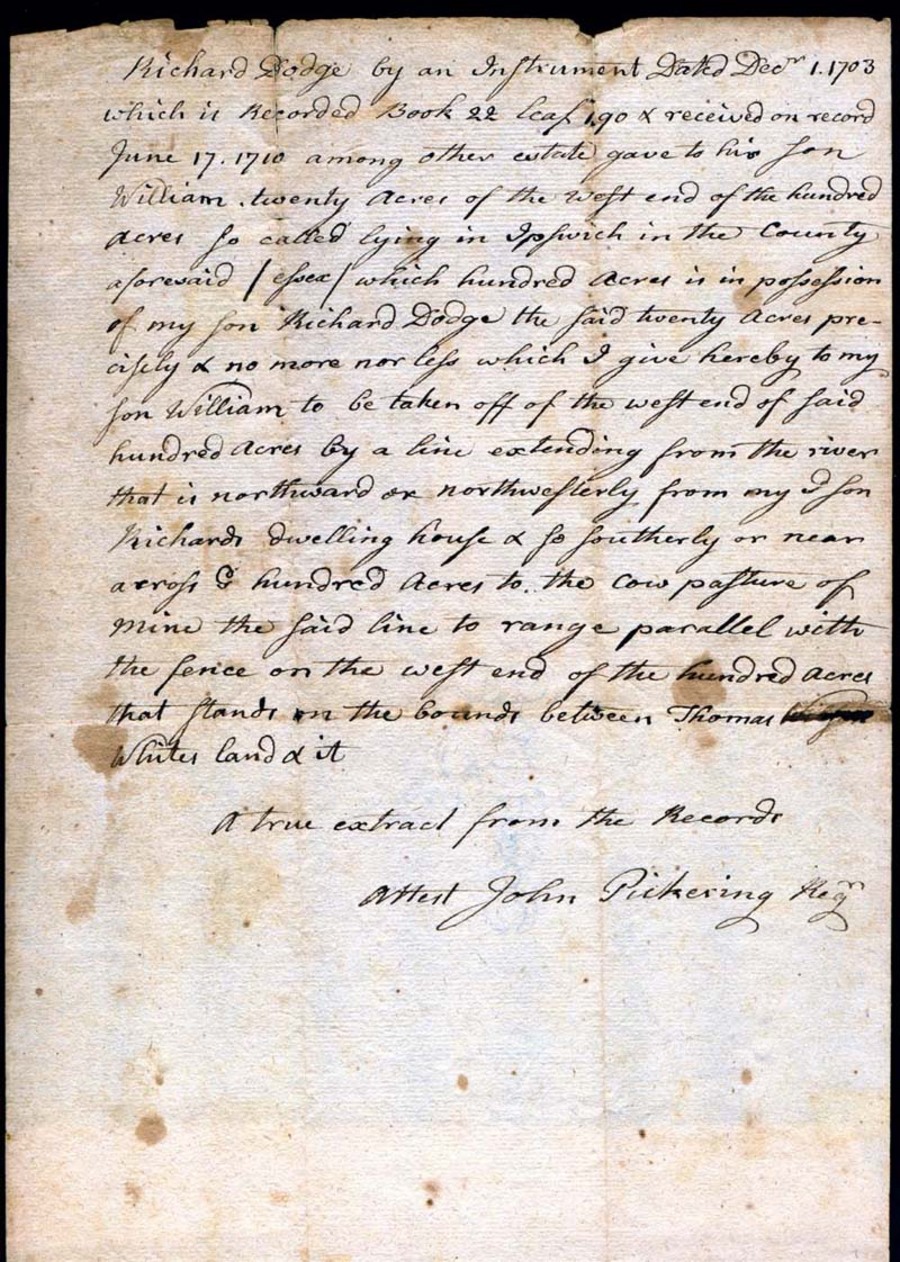 Richard Dodge by an Instrument Dated Decr 1.1703
which is Recorded Book 22 leaf 190 & received on record
June 17. 1710 among other estate gave to his son
William . twenty Acres of the West end of the hundred
Acres so called lying in Ipswich in the County
aforesaid /essex/ which hundred Acres is in possession
of my son Richard Dodge the said twenty Acres pre-
cisely & no more nor less which I give hereby to my
son William to be taken off of the west end of said
hundred Acres by a line extending from the river
that is northward or northwesterly from my sd son
Richards dwelling house & so southerly or near
across sd hundred Acres to the cow pasture of
mine the said line to range parallel with
the fence on the west end of the hundred Acres
that stands on the bounds between Thomas
Whites land & it
A true extract from the Records
Attest John Pickering Regr